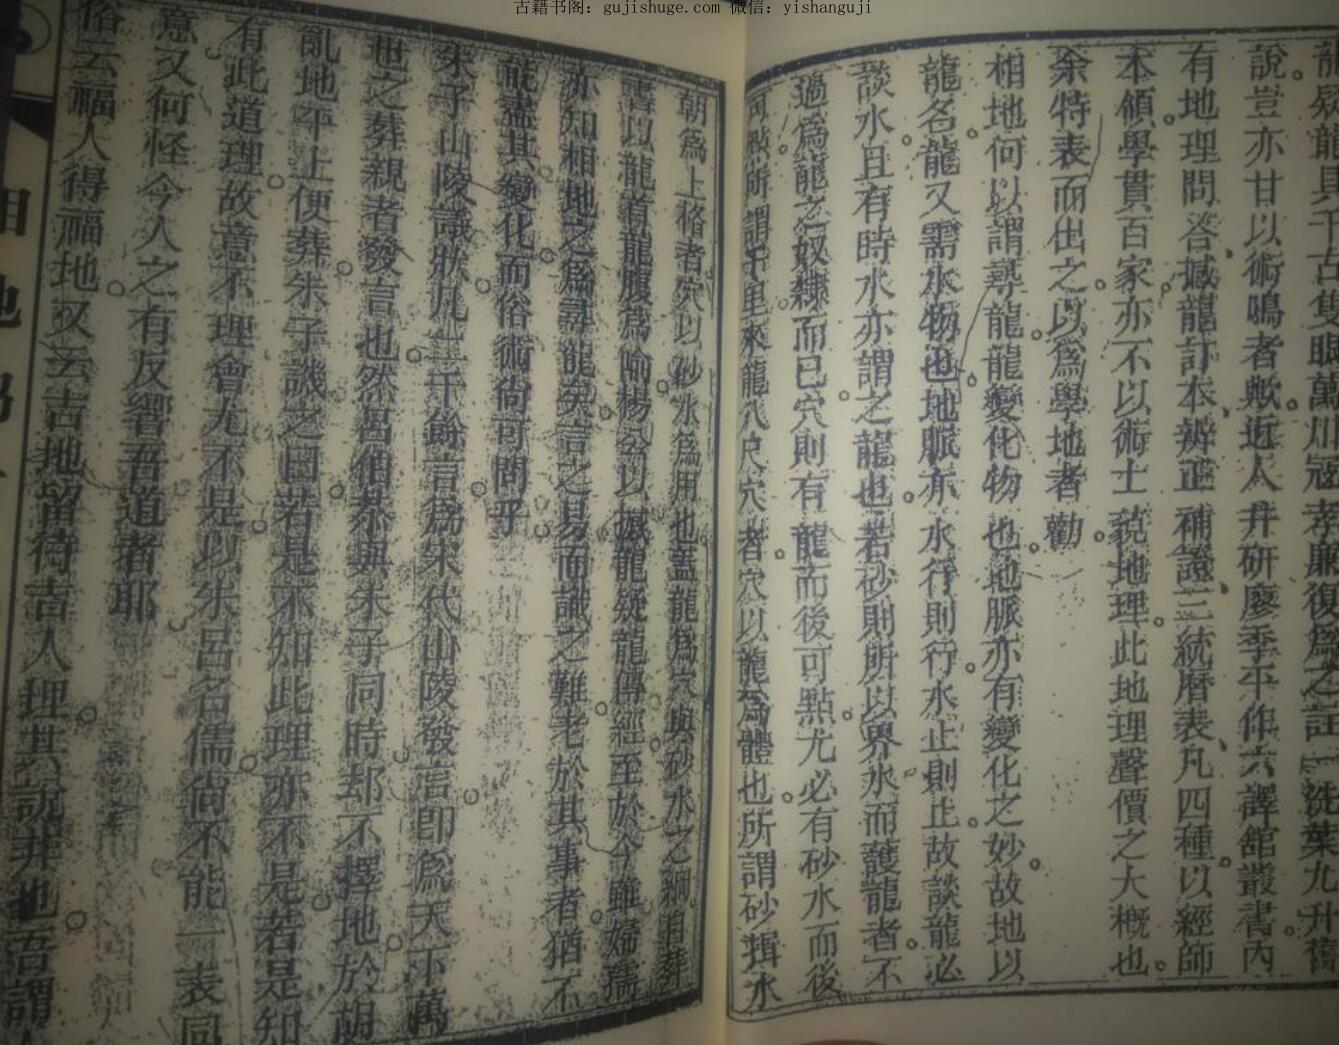 古籍书阁：gujishuge.com 微信：yishanguji
龍疑龍具千古雙眼萬川冠孝廉復爲之註一洗葉九升舊
說豈亦甘以術鳴者歟近人井研廖季平作六譯館叢書內
有地理問答撼龍訂本辨正補證三統曆表凡四種以經師
本領學貫百家亦不以術士藐地理此地理聲價之大概也
余特表而出之以爲學地者勸
相地何以謂尋龍龍變化物也地脈亦有變化之妙故地以
龍名龍又需水物也地脈亦水行則行水止則止故談龍必
談水且有時水亦謂之龍也若砂則所以界水而護龍者不
過爲龍之奴隸而已穴則有龍而後可點尤必有砂水而後
可點所謂千里來龍八尺穴者穴以龍爲體也所謂砂揖水
朝爲上格者穴以砂水爲用也蓋龍爲穴與砂水之綱自葬
書以龍首龍腹爲喻楊公以撼龍疑龍傳經至於今雖婦孺
亦知相地之爲尋龍矣言之易而識之難老於其事者猶不
能盡其變化而俗術尚可問乎
朱子山陵議狀凡一千餘言爲宋代山陵發言即爲天下萬
世之葬親者發言也然呂伯恭與朱子同時却不擇地於胡
亂地平上便葬朱子譏之曰若是不知此理亦不是若是知
有此道理故意不理會尤不是以朱呂名儒尚不能一表同
意又何怪今人之有反響吾道者耶
俗云福人得福地又云吉地留待吉人理其說非也吾謂
相地